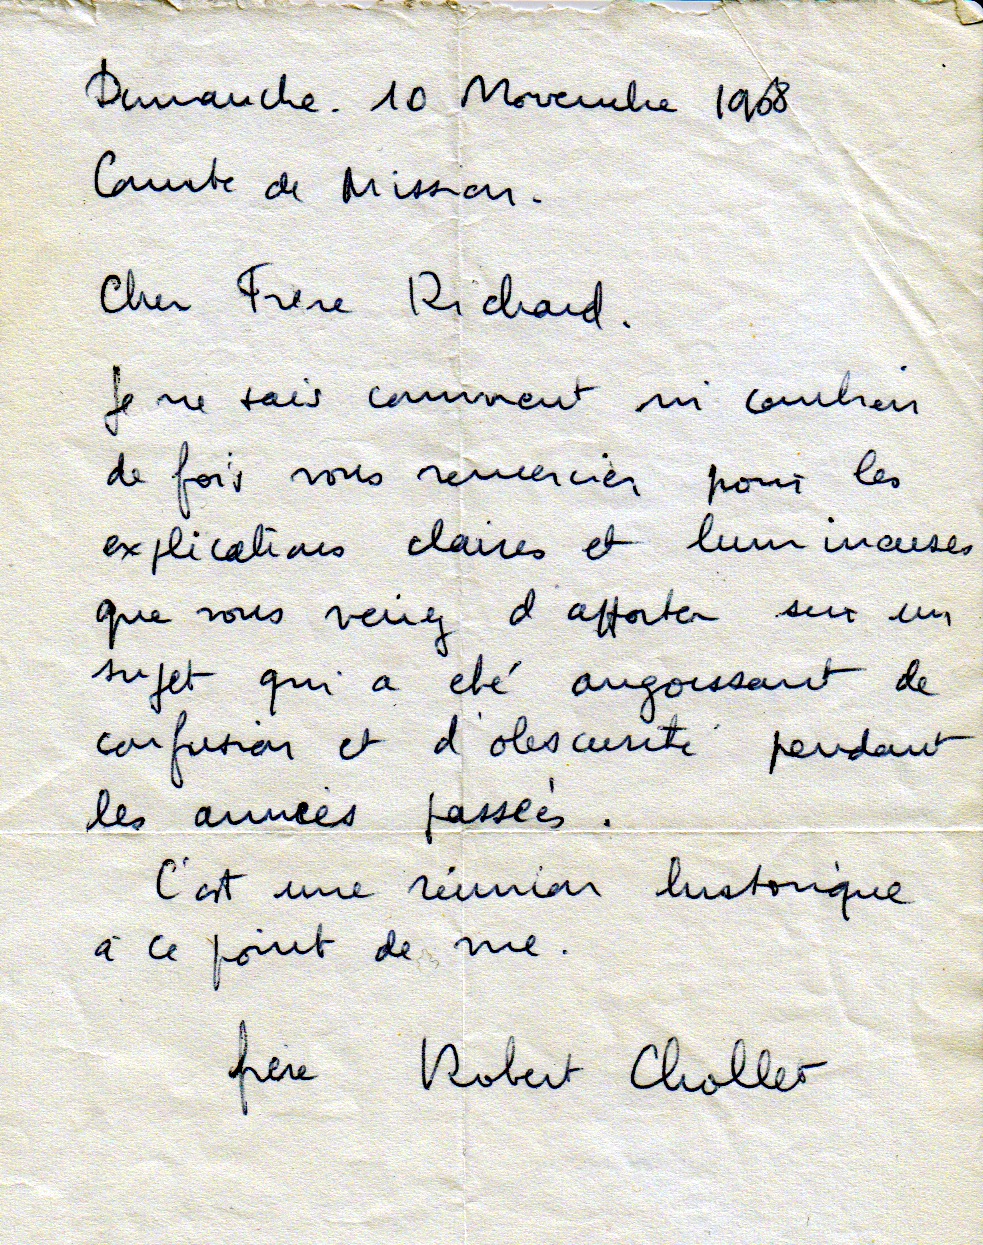 Dimanche. 10 Novembre 1968
Comité de Mission.
Cher Frère Richard.
Je ne sais comment ni combien
de fois vous remercier pour les
explications claires et lumineuses
que vous venez d'apporter sur un
sujet qui a été angoissant de
confusion et d'obscurité pendant
les années passées.
C'est une réunion historique
à ce point de vue.
frère Robert Chollet